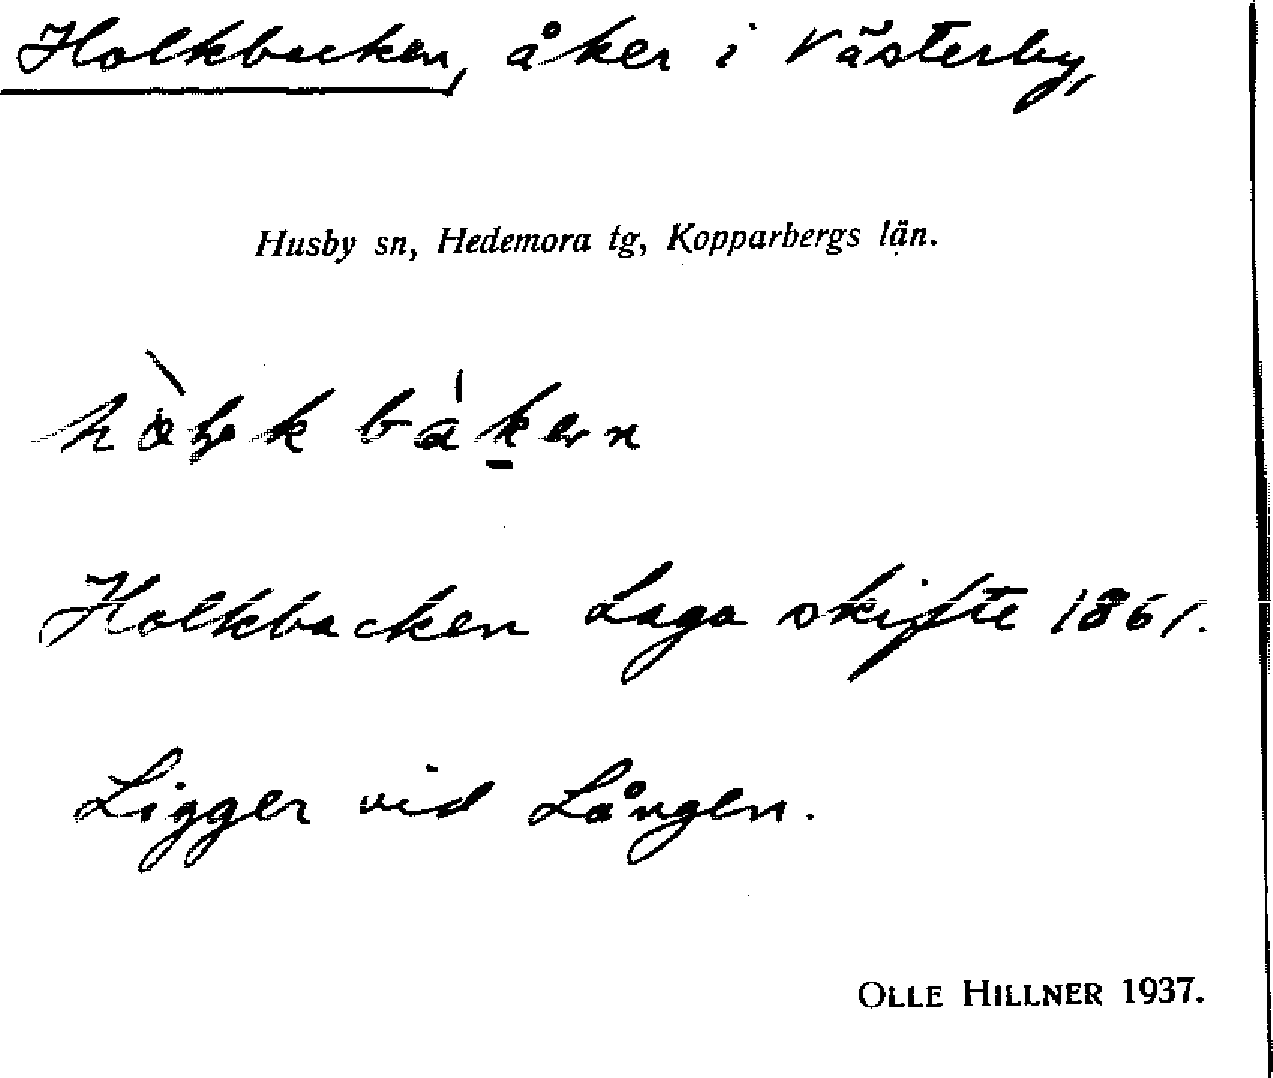 Holkbacken, åker i Västerby,
Husby sn, Hedemora tg, Kopparbergs län.
Holkbacken Laga skifte 1861.
Ligger vid Lången.
OLLE HILLNER 1937.